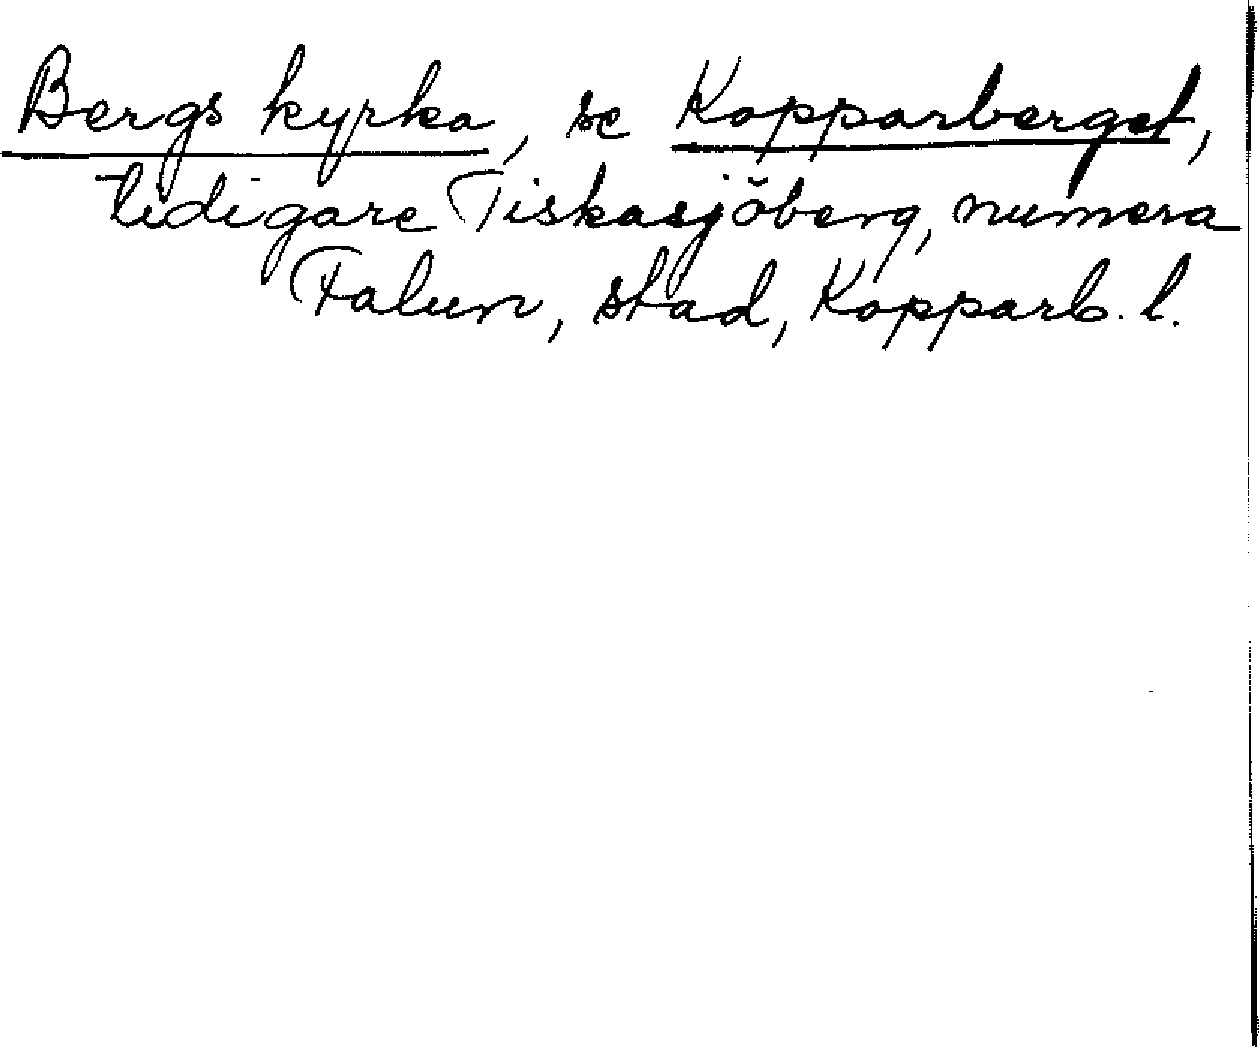 Bergs kyrka, se Kopparberget,
tidigare Tiskasjöberg, numera
Falun, stad, Kopparb. l.